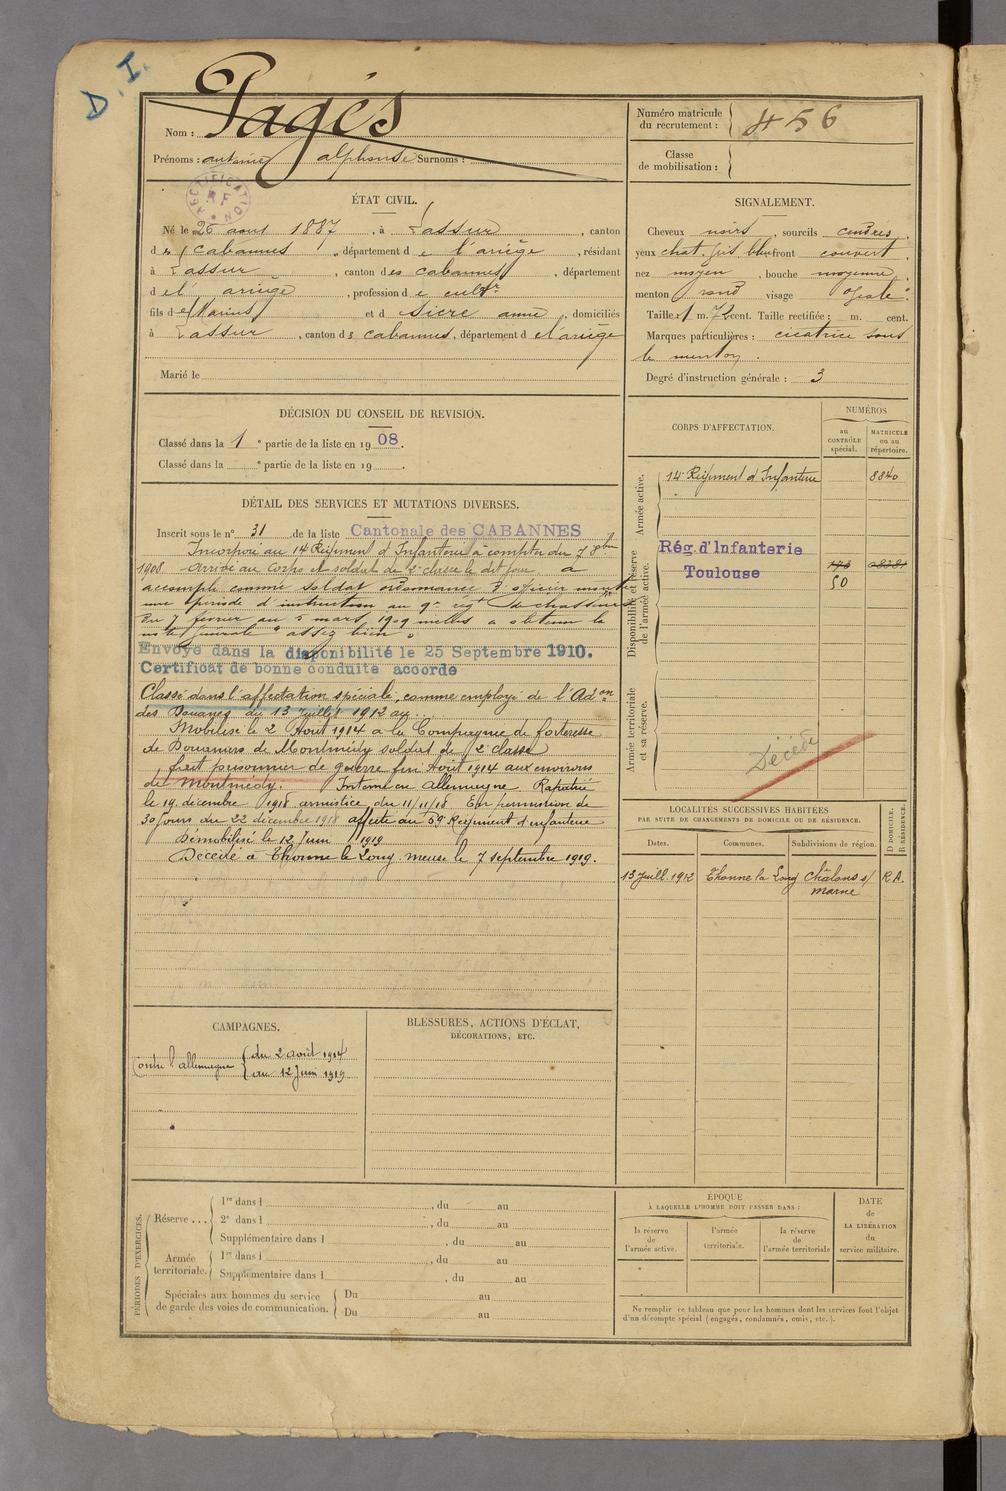 D. I.
Nom : Pagès
Prénoms : antoine alphonse Surnoms :
RECTIFICATION R F
Numéro matricule du recrutement : 456
Classe de mobilisation :
ÉTAT CIVIL.
Né le 26 aout 1887, à Lassur, canton
des Cabannes, département de l'ariège, résidant
à Lassur, canton des cabannes, département
de l'ariège, profession de cultr
fils de Marius et de Sicre anne, domiciliés
à Lassur, canton ds cabannes, département de l'ariège
Marié le
SIGNALEMENT.
Cheveux noirs, sourcils cendres.
yeux chat. gris bleu front couvert.
nez moyen, bouche moyenne.
menton rond visage ovale.
Taille : 1 m. 72 cent. Taille rectifiée : m. cent.
Marques particulières : cicatrice sous
le menton.
Degré d'instruction générale : 3
DÉCISION DU CONSEIL DE REVISION.
Classé dans la 1e partie de la liste en 1908.
Classé dans la e partie de la liste en 19 .
DÉTAIL DES SERVICES ET MUTATIONS DIVERSES.
Inscrit sous le n° 31 de la liste Cantonale des CABANNES
Incorporé au 14e Régiment d'Infanterie à compter du 7 8bre
1908. Arrivé au Corps et soldat de 2e classe le dit jour. a
accompli comme soldat ordonnance d'officier monté
une période d'instruction au 9e regt de chasseurs
du 7 fevrier au 5 mars 1909 a obtenu la
note générale "assez bien"
Envoyé dans la disponibilité le 25 Septembre 1910.
Certificat de bonne conduite accordé
Classé dans l'affectation spéciale, comme employé de l'Adon
des Douanes du 13 Juillet 1912 au
Mobilisé le 2 Aout 1914 à la Compagnie de forteresse
de Douaniers de Montmédy soldat de 2e classe
fait prisonnier de guerre fin Août 1914 aux environs
de Montmédy. Interné en Allemagne. Rapatrié
le 19 décembre 1918 armistice du 11/11/18. En permission de
30 jours du 22 décembre 1918 affecté au 59e Régiment d'infanterie
Démobilisé le 12 Juin 1919
Décédé à Thonne le Long meuse le 7 septembre 1919.
CORPS D'AFFECTATION.
NUMÉROS
au CONTRÔLE spécial.
MATRICULE ou au répertoire.
Armée active.
14e Régiment d'Infanterie 8840
Disponibilité et réserve de l'armée active.
Rég. d'Infanterie
Toulouse
50
Armée territoriale et sa réserve.
Décédé
LOCALITÉS SUCCESSIVES HABITÉES
PAR SUITE DE CHANGEMENTS DE DOMICILE OU DE RÉSIDENCE.
D DOMICILE. R RÉSIDENCE.
Dates. Communes. Subdivisions de région.
13 Juill. 1912 Thonne la Long Châlons s/ R.A.
marne
CAMPAGNES.
Contre l'allemagne du 2 août 1914
au 12 Juin 1919
BLESSURES, ACTIONS D'ÉCLAT,
DÉCORATIONS, ETC.
PÉRIODES D'EXERCICES.
Réserve ... 1re dans l , du au
2e dans l , du au
Supplémentaire dans l , du au
Armée territoriale. 1re dans l , du au
Supplémentaire dans l , du au
Spéciales aux hommes du service de garde des voies de communication. Du au
Du au
ÉPOQUE
À LAQUELLE L'HOMME DOIT PASSER DANS :
la réserve de l'armée active.
l'armée territoriale.
la réserve de l'armée territoriale
DATE
de
LA LIBÉRATION
du
service militaire.
Ne remplir ce tableau que pour les hommes dont les services font l'objet
d'un décompte spécial (engagés, condamnés, omis, etc.).